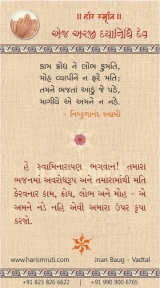 ॥ હરિ સ્મૃતિ ॥
એજ અરજી દયાનિધિ દેવ
કામ ક્રોધ ને લોભ કુમતિ,
મોહ વ્યાપીને ન ફરે મતિ;
તમને ભજતાં આડું જે પડે,
માગીયે એ અમને ન નડે.
- નિષ્કુળાનંદ સ્વામી
હે સ્વામિનારાયણ ભગવાન! તમારા
ભજનમાં અવરોધરૂપ અને તમારામાંથી મતિ
ફેરવનાર કામ, ક્રોધ, લોભ અને મોહ - એ
અમને નડે નહિ એવી અમારા ઉપર કૃપા
કરજો.
www.harismruti.com Jnan Baug - Vadtal
+91 823 826 6622 | +91 990 900 6765